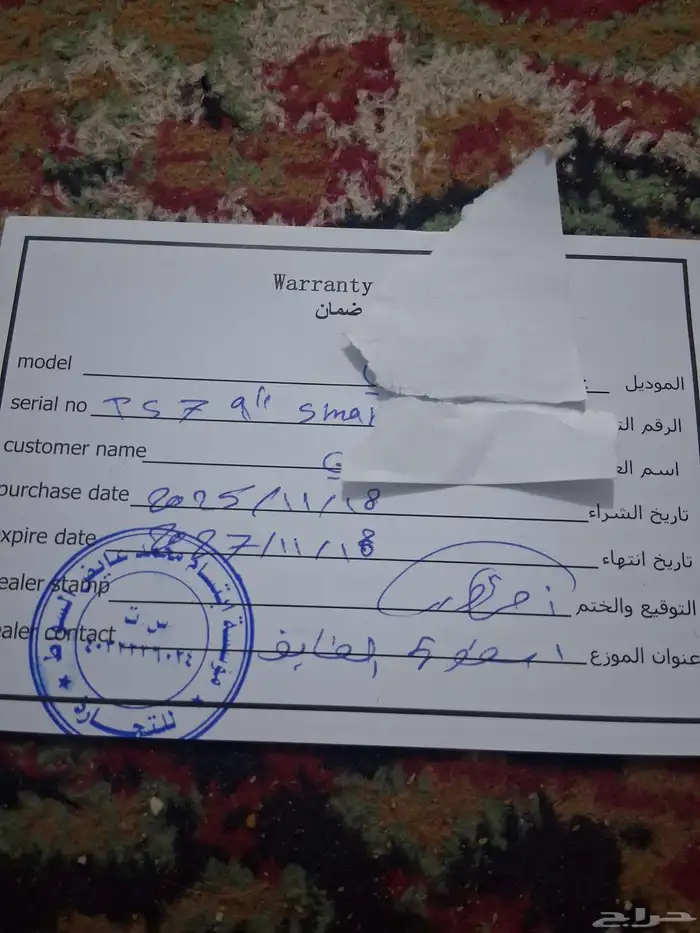 Warranty
ضمان
model الموديل
serial no TS7 9" Smal
customer name
purchase date 2025/11/18 تاريخ الشراء
xpire date 2027/11/18 تاريخ انتهاء
ealer stamp التوقيع والختم
ealer contact عنوان الموزع
مؤسسة ابتسام محمد عايض
للتجارة
س ت
حراج